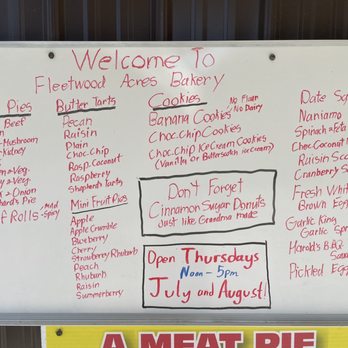 Welcome To
Fleetwood Acres Bakery
Pies
Beef
Mushroom
Kidney
& Veg.
& Veg
& Onion
herd's Pie
f Rolls - Mild
-Spicy
Butter Tarts
Pecan
Raisin
Plain
Choc. Chip
Rasp. Coconut
Raspberry
Shepherds Tarts
Mini Fruit Pies
Apple
Apple Crumble
Blueberry
Cherry
Strawberry Rhubarb
Peach
Rhubarb
Raisin
Summerberry
Cookies
No Flour
No Dairy
Banana Cookies
Choc. Chip Cookies
Choc. Chip Ice Cream Cookies
(Vanilla or Butterscotch ice cream)
Don't Forget
Cinnamon Sugar Donuts
Just like Grandma made
Open Thursdays
Noon - 5pm
July and August!
Date Sq
Nanaimo
Spinach & Feta
Choc Coconut
Raisin Sco
Cranberry S
Fresh White
Brown Egg
Garlic King
Garlic Spr
Harold's B.B.Q
Sau
Pickled Egg
A MEAT PIE